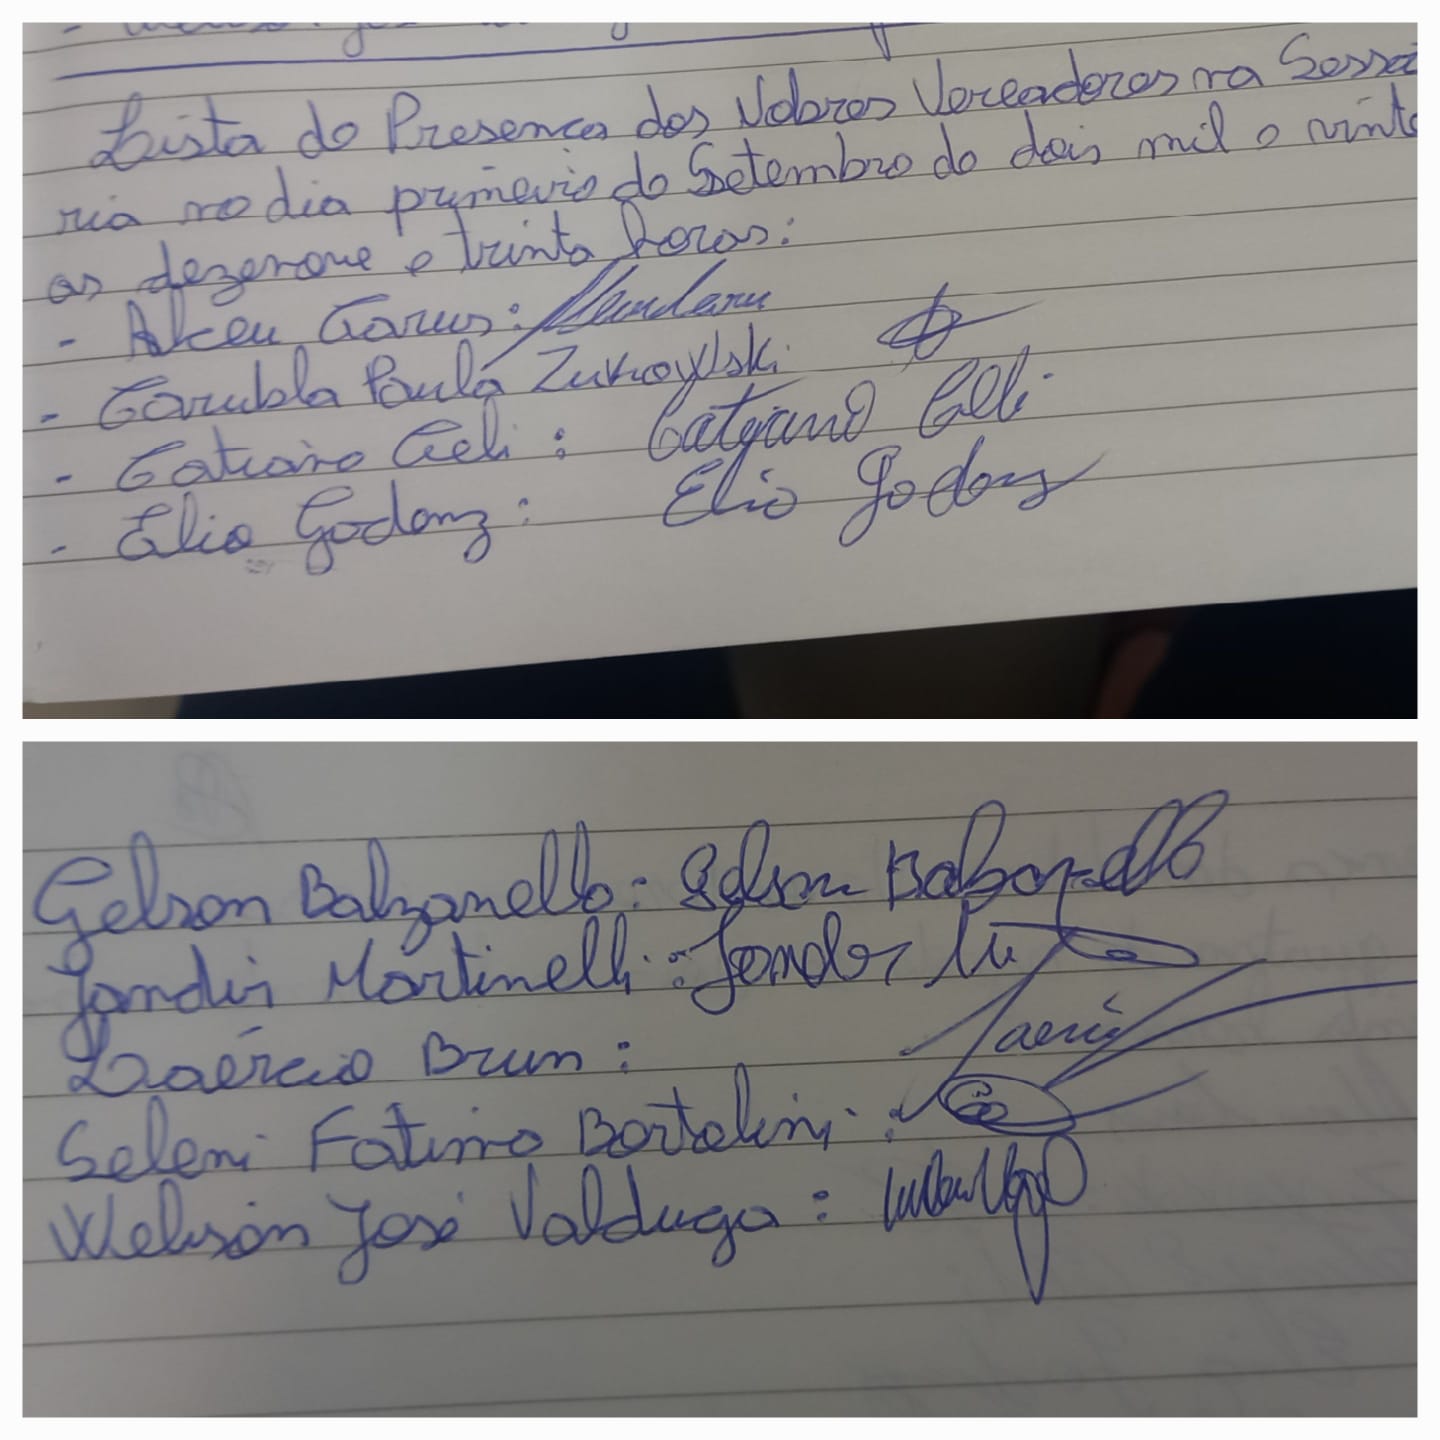 Lista de Presença dos Nobres Vereadores na Sessã
ria no dia primeiro de Setembro de dois mil e vinte
as dezenove e trinta horas:
- Alceu Garus:
- Carubla Paula Zukovski
- Catiano Celi : Catyano Celi
- Elio Godony : Elio Godoy
Gelson Balzanello: Gelson Balzanello
Jandir Martinelli : Jandir
Laércio Brun : Laercio
Seleni Fatima Bortolini :
Welison José Valduga :